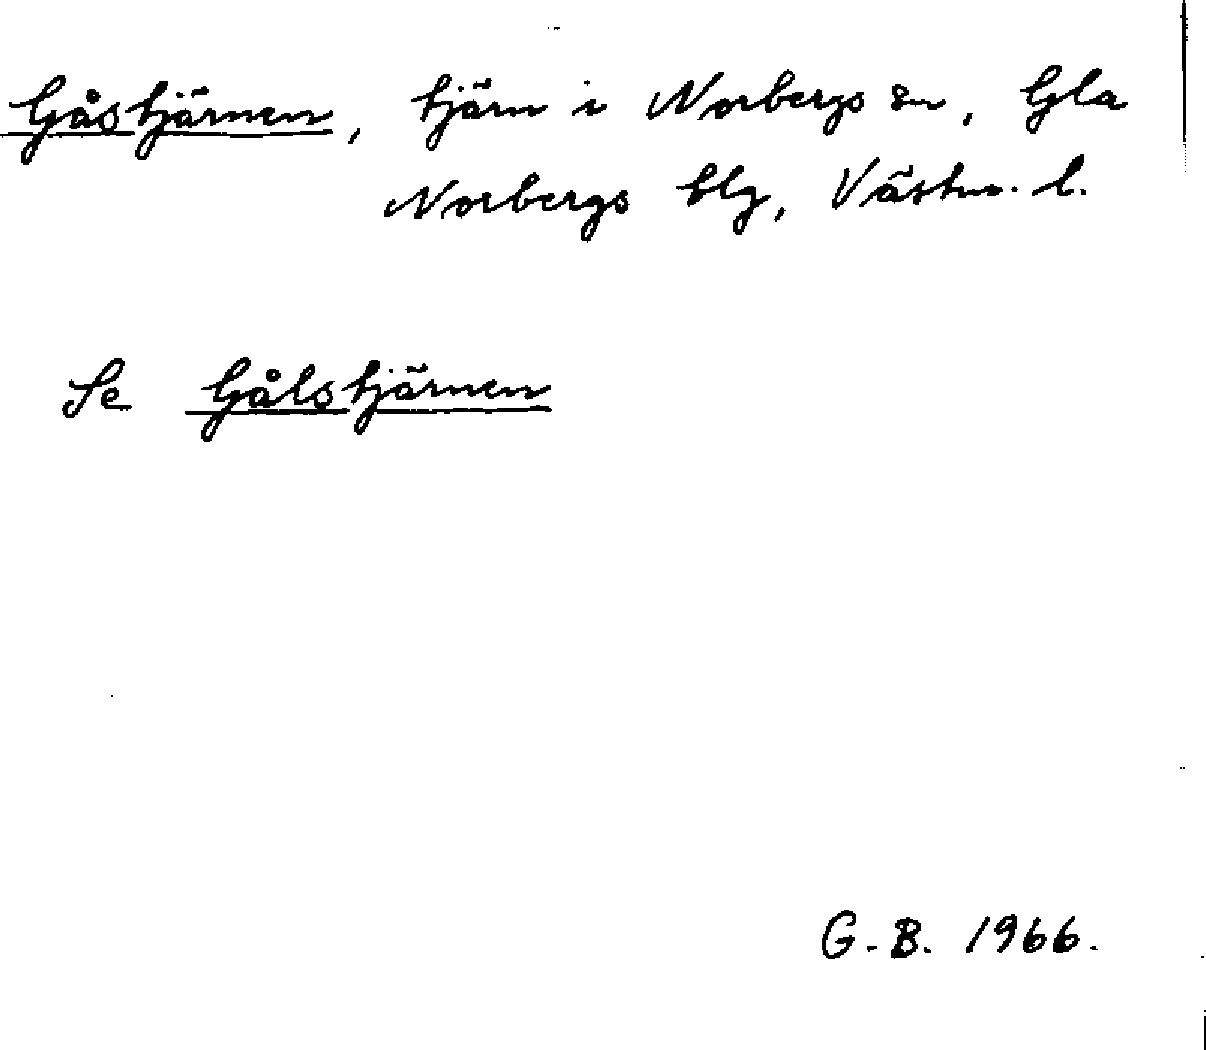 Gåstjärnen, tjärn i Norbergs sn, Gla
Norbergs blg, Västm. l.
Se Gålstjärnen
G.B. 1966.